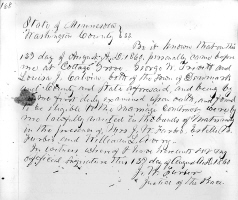 168
State of Minnesota
Washington County } ss
Be it known that on this
13th day of August A.D. 1860, personally came before
me at Cottage Grove George W.
Louisa J. both of the Town of Denmark
and County and State aforesaid, and being by
me first duly examined upon oath, and found
to be eligible to the marriage contract were by
me lawfully united in the bonds of Matrimony
in the presence of Mrs J. W. Furber
Furber and William
In witness whereof I have hereunto set my
official signature this 13th day of August A.D. 1860
J. W. Furber
Justice of the Peace